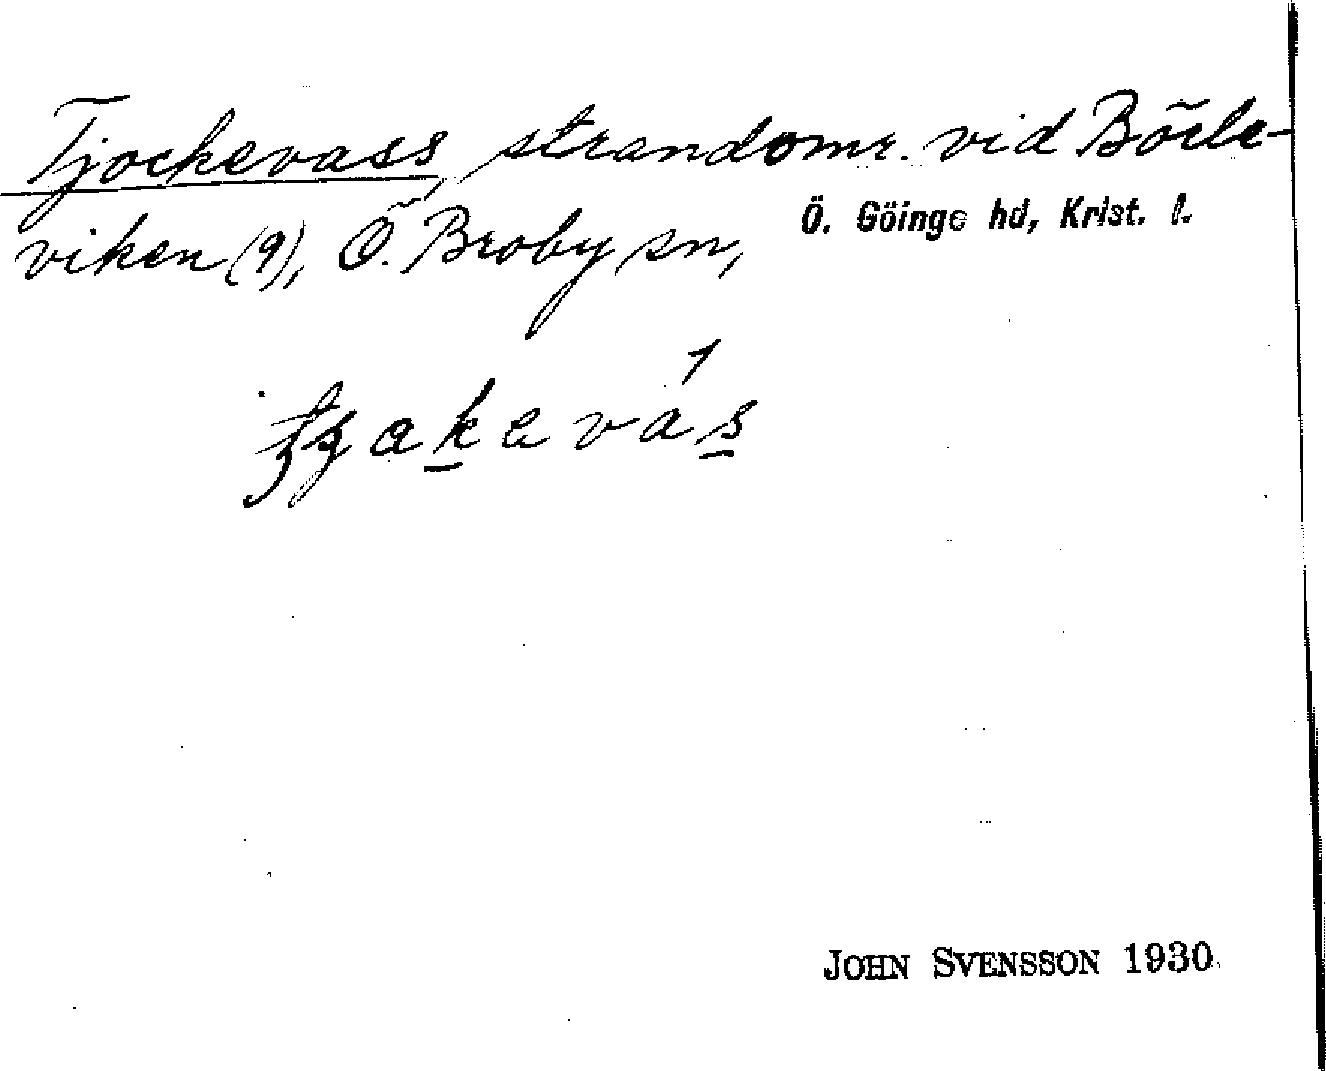 Tjockevass, strandomr. vid Böele-
viken (9), Ö. Broby sn,
Ö. Göinge hd, Krist. l.
JOHN SVENSSON 1930.